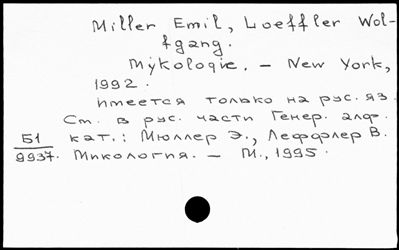 Miller Emil, Loeffler Wol-
fgang.
Mykologie. – New York,
1992.
Имеется только на рус. яз.
См. в рус. части Генер. алф.
Б1 кат.: Мюллер Э., Леффлер В.
9937. Микология. – М., 1995.